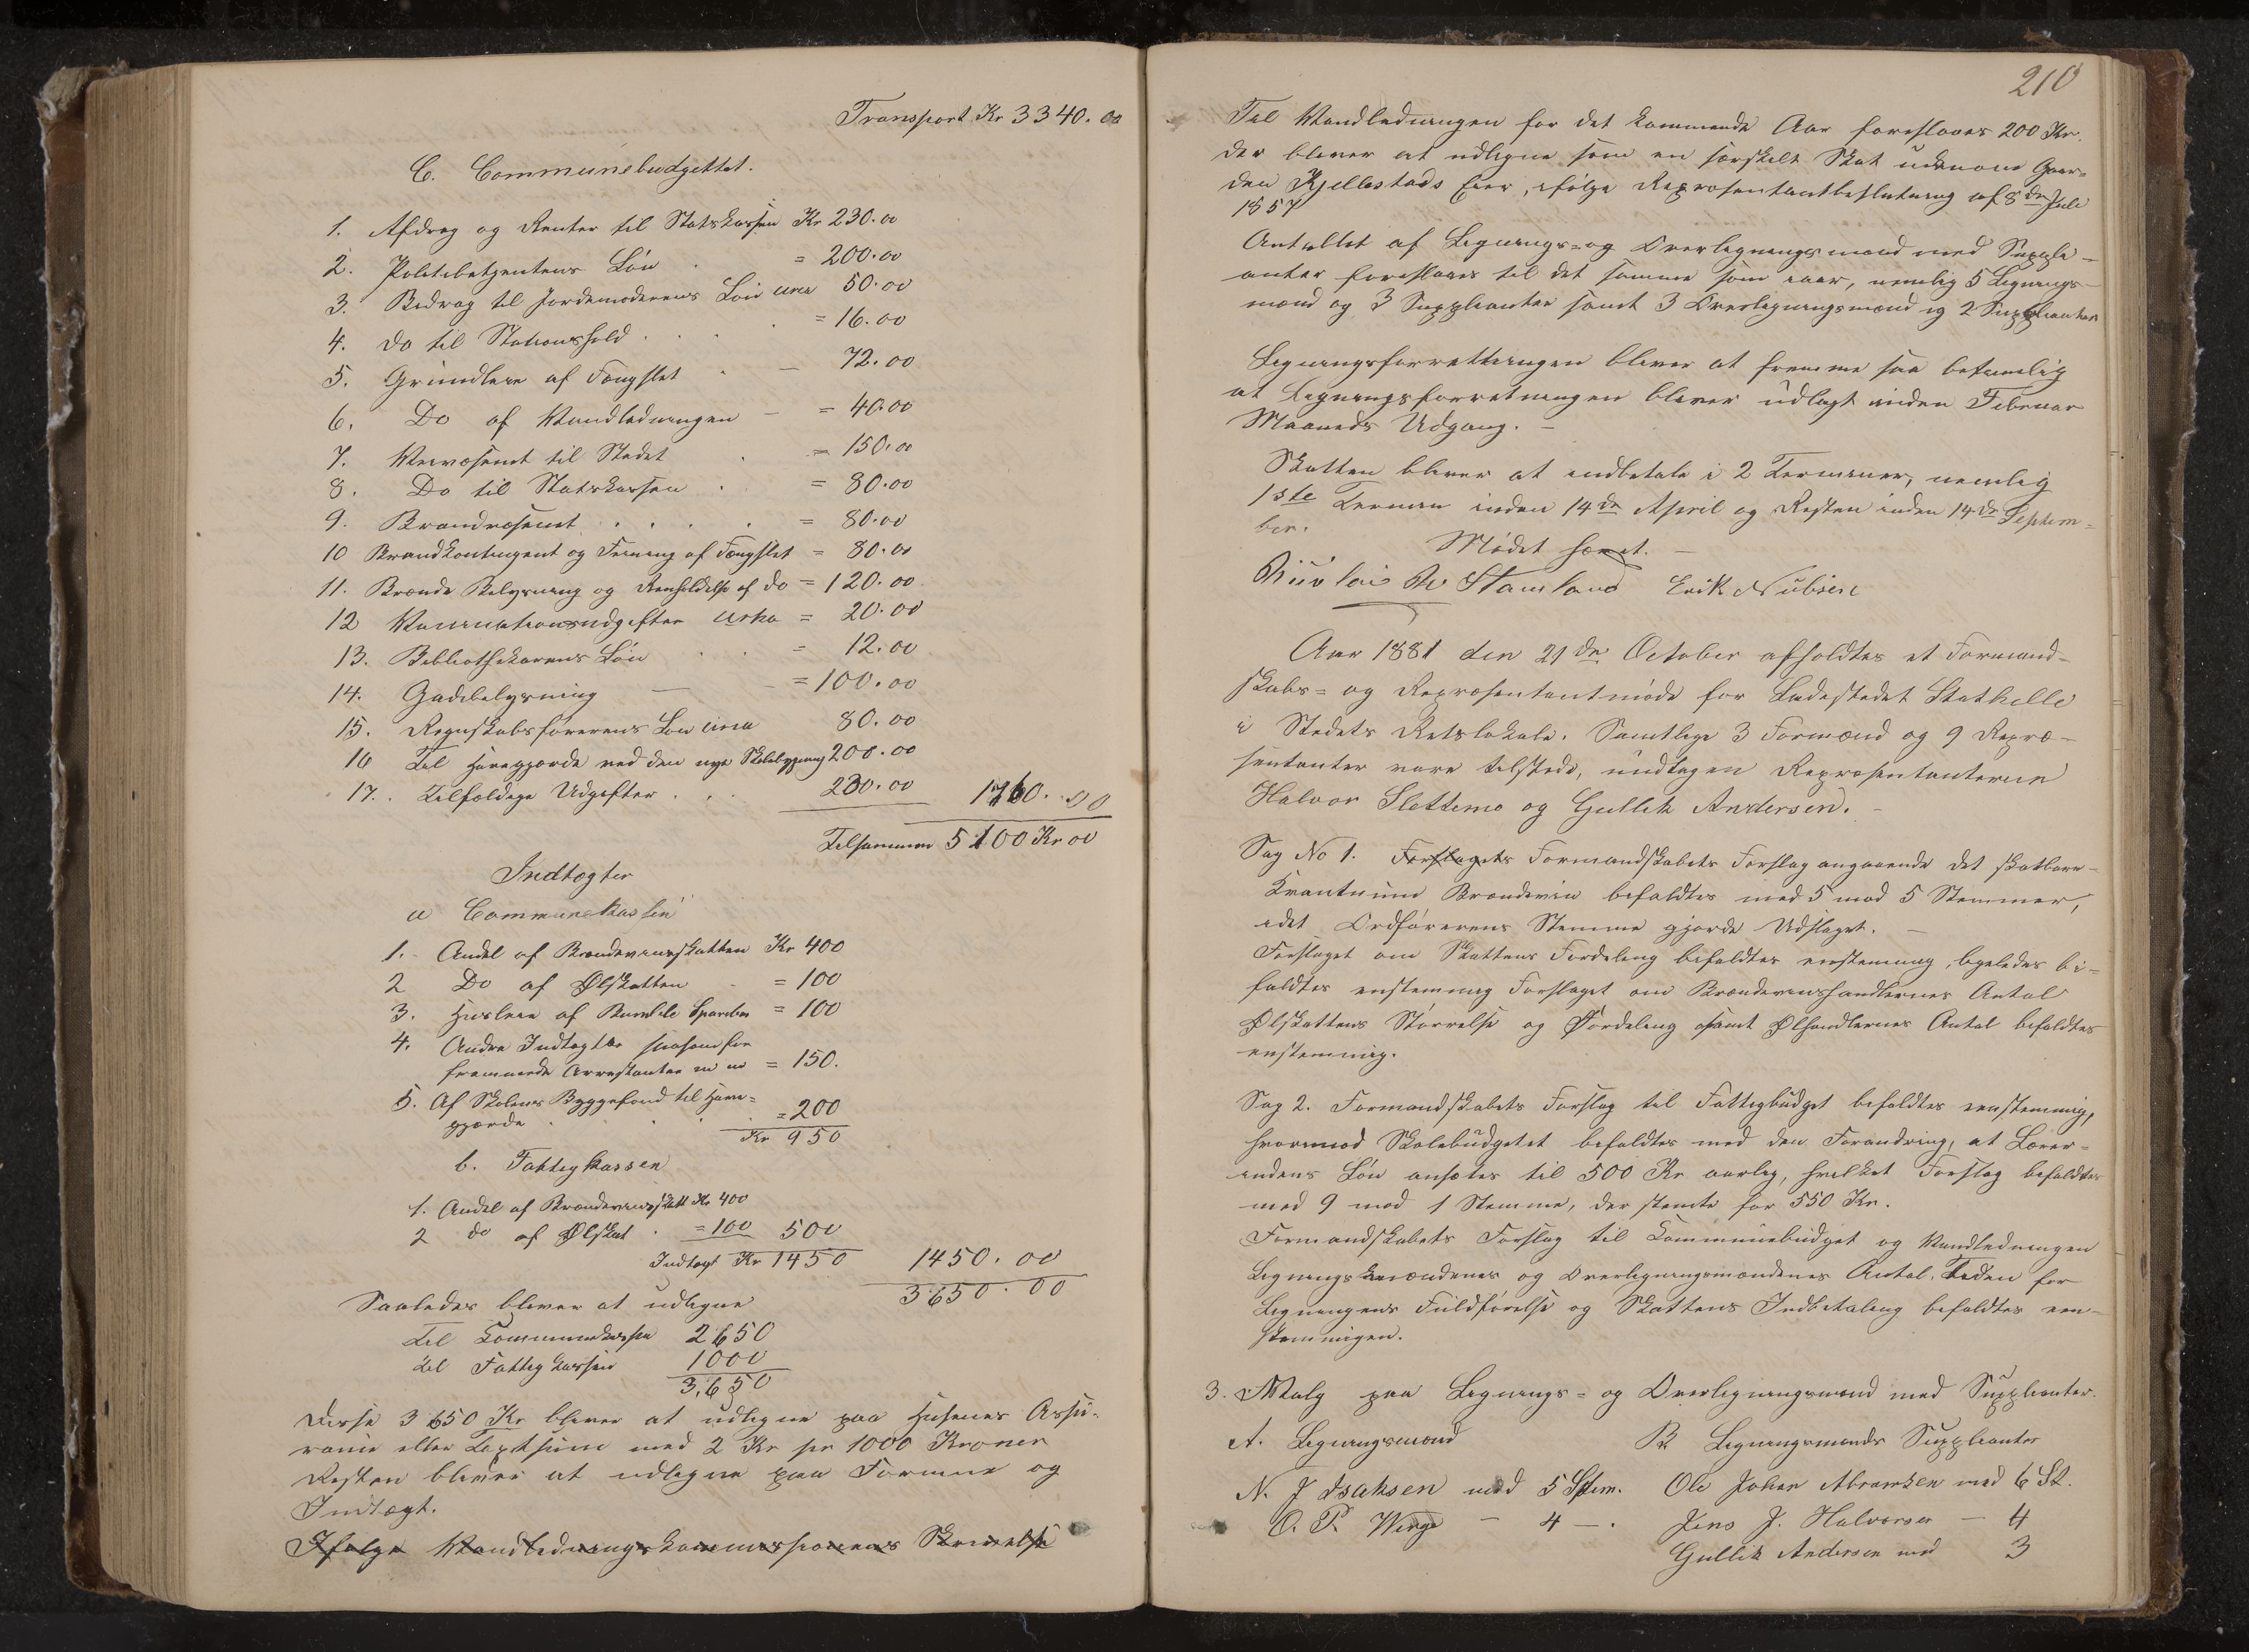 Transport Kr 3340.00
C. Communebudgettet.
1. Afdrag og Renter til Statskassen Kr 230.00
2. Politibetjentens Løn = 200.00
3. Bidrag til Jordemoderens Løn circa 50.00
4. Do til Stationshold = 16.00
5. Grundleie af Fængslet 72.00
6. Do af Vandledningen = 40.00
7. Veivæsenet til Stedet = 150.00
8. Do til Statskassen = 80.00
9. Brandvæsenet = 80.00
10 Brandkontingent og af Fængslet = 80.00
11. Brænde Belysning og Renholdelse af do = 120.00
12 Vaccinationsudgifter cirka = 20.00
13. Bibliothekarens Løn = 12.00
14. Gadebelysning = 100.00
15. Regnskabsførerens Løn circa 80.00
16 Til Havegjærde ved den nye Skolebygning 200.00
17. Tilfældige Udgifter 230.00 1760.00
Tilsammen 5100 Kr 00
Indtægter
a Communekassen
1. Andel af Brændevinsskatten Kr 400
2 Do af Ølskatten = 100
3. Husleie af Bamble Sparebk = 100
4. Andre Indtægter saasom for
fremmede Arrestanter m m = 150.
5. Af Skolens Byggefond til Have-
gjærde = 200
Kr 950
b. Fattigkassen
1. Andel af Brændevinsskatt Kr 400
2 do af Ølskat = 100 500
Indtægt Kr 1450 1450.00
3650.00
Saaledes bliver at udligne
til Communekassen 2650
til Fattigkassen 1000
3,650
Disse 3650 Kr bliver at udligne paa Husenes Assu-
rance eller Taxtsum med 2 Kr pr 1000 Kroner
Resten bliver at udligne paa Formue og
Indtægt.
Ifølge Vandledningskommissionens Skrivelse
210
Til Vandledningen for det kommende Aar foreslaaes 200 Kr.
der bliver at udligne som en særskilt Skat udenom Gaar-
den Kjellestads Eier, ifølge Repræsentantbeslutning af 8de Juli
1857
Antallet af Lignings- og Overligningsmænd med Supple-
anter foreslaaes til det samme som iaar, nemlig 5 Lignings-
mænd og 3 Suppleanter samt 3 Overligningsmænd og 2 Suppleanter
Ligningsforretningen bliver at fremme saa betimelig
at Ligningsforretningen bliver udlagt inden Februar
Maaneds Udgang.
Skatten bliver at indbetale i 2 Terminer, nemlig
1ste Termin inden 14de April og Resten inden 14de Septem-
ber.
Mødet hævet.
Stamland Erik Nubsen
Aar 1881 den 21de October afholdtes et Formand-
skabs- og Repræsentantmøde for Ladestedet Stathelle
i Stedets Retslokale. Samtlige 3 Formænd og 9 Repræ-
sentanter vare tilstede, undtagen Repræsentanterne
Halvor Slettemo og Gullik Andersen.
Sag No 1. Forslagets Formandskabets Forslag angaaende det skatbare
Kvantum Brændevin bifaldtes med 5 mod 5 Stemmer,
idet Ordførerens Stemme gjorde Udslaget.
Forslaget om Skattens Fordeling bifaldtes enstemmig, ligeledes bi-
faldtes enstemmig Forslaget om Brændevinshandlernes Antal
Ølskattens Størrelse og Fordeling samt Ølhandlernes Antal bifaldtes
enstemmig.
Sag 2. Formandskabets Forslag til Fattigbudget bifaldtes eenstemmig,
hvorimod Skolebudgetet bifaldtes med den Forandring, at Lærer-
indens Løn ansættes til 500 Kr aarlig, hvilket Forslag bifaldtes
med 9 mod 1 Stemme, der stemte for 550 Kr.
Formandskabets Forslag til Communebudget og Vandledningen
Ligningsmændenes og Overligningsmændenes Antal, Tiden for
Ligningens Fuldførelse og Skattens Indbetaling bifaldtes een-
stemmigen.
3. Valg paa Lignings- og Overligningsmænd med Suppleanter.
A. Ligningsmænd B Ligningsmænds Suppleanter
N. J Isaksen med 5 Stem. Ole Johan Abramsen med 6 St.
O. P. Winge - 4 - . Jens J. Halvorsen - 4
Gullik Andersen med 3